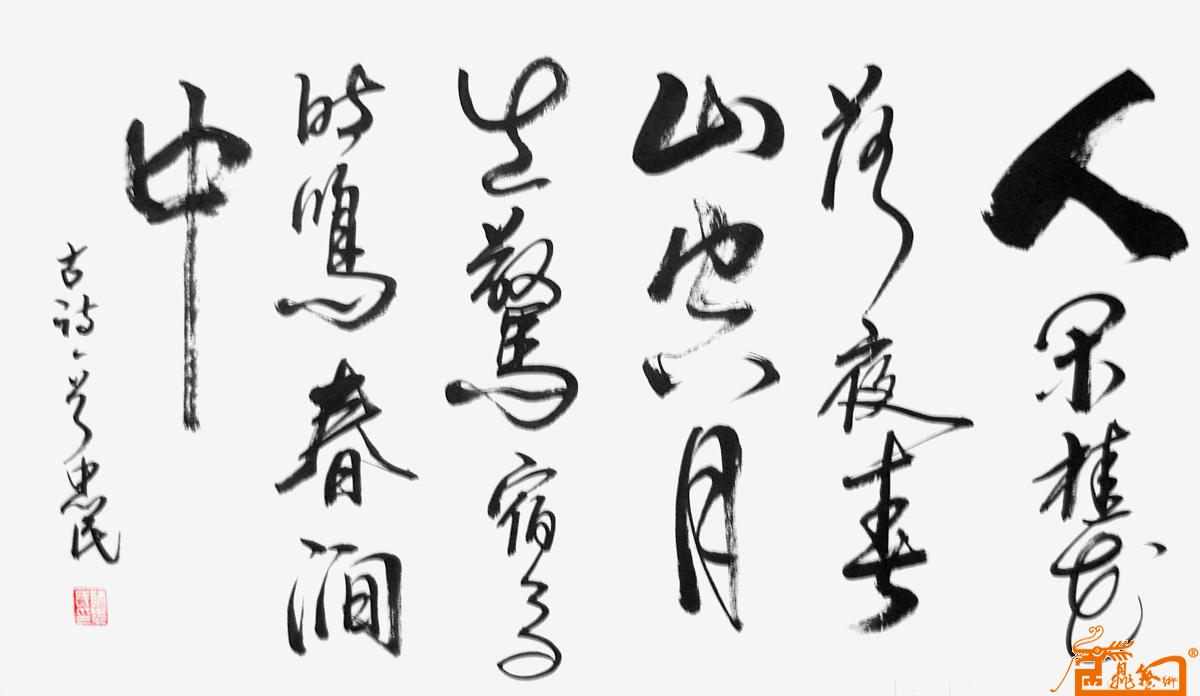 人闲桂花
落夜春
山空月
出驚宿鸟
时鳴春澗
中
古诗一首忠民